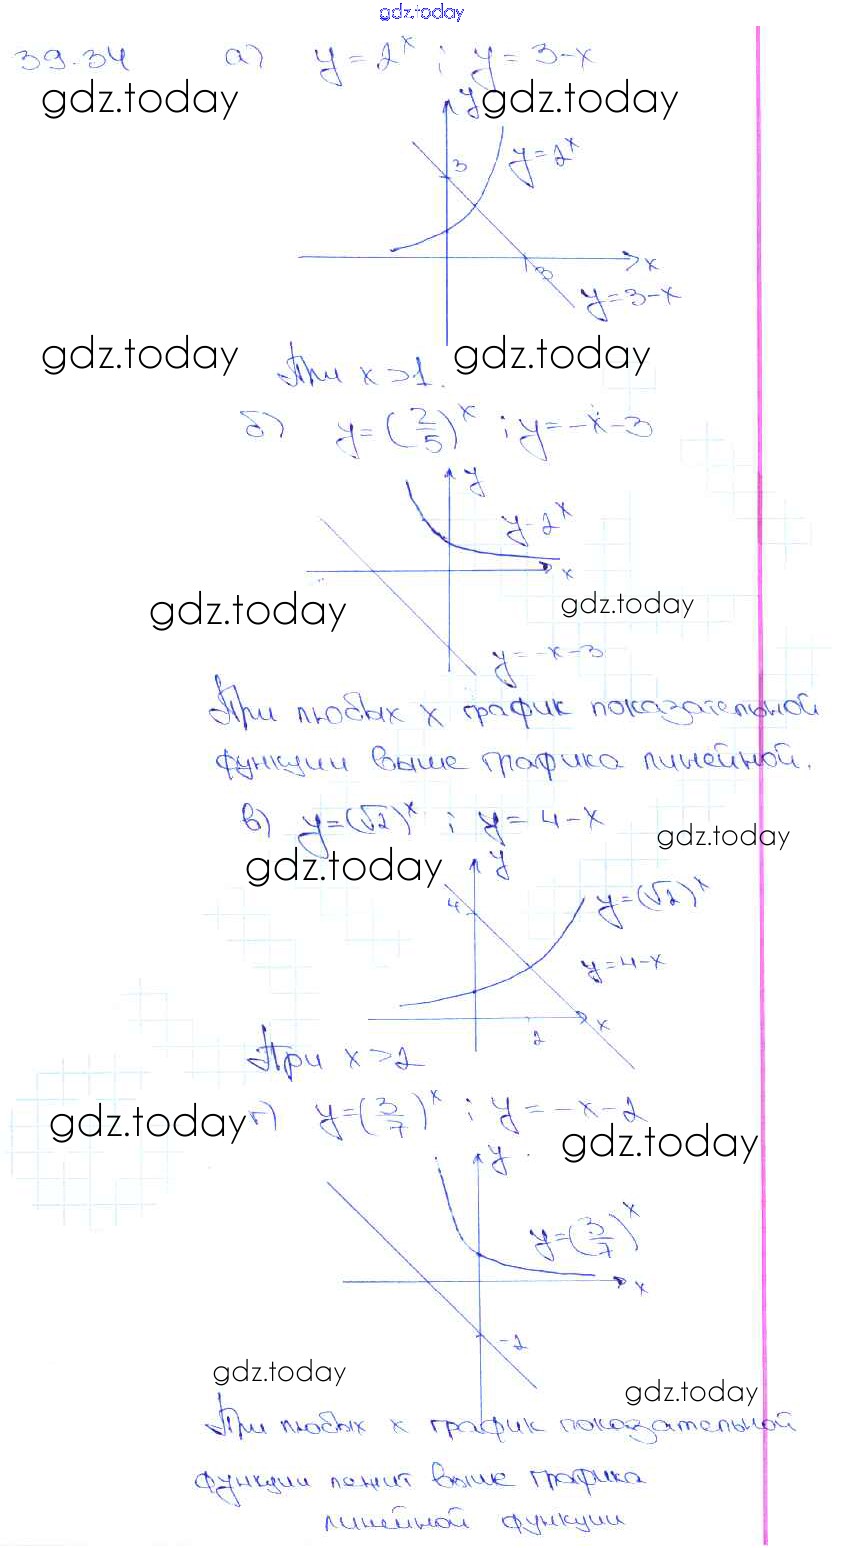 gdz.today
39.34 а) y = 2^x ; y = 3-x
gdz.today gdz.today
y
3
y=2^x
x
3
y=3-x
gdz.today gdz.today
При x>1.
б) y=(2/5)^x ; y=-x-3
y
y=2^x
x
gdz.today gdz.today
y=-x-3
При любых x график показательной
функции выше графика линейной.
в) y=(√2)^x ; y=4-x
gdz.today
gdz.today
y
4
y=(√2)^x
y=4-x
x
2
При x>2
gdz.today г) y=(3/7)^x ; y=-x-2
gdz.today
y
y=(3/7)^x
x
-2
gdz.today
gdz.today
При любых x график показательной
функции лежит выше графика
линейной функции